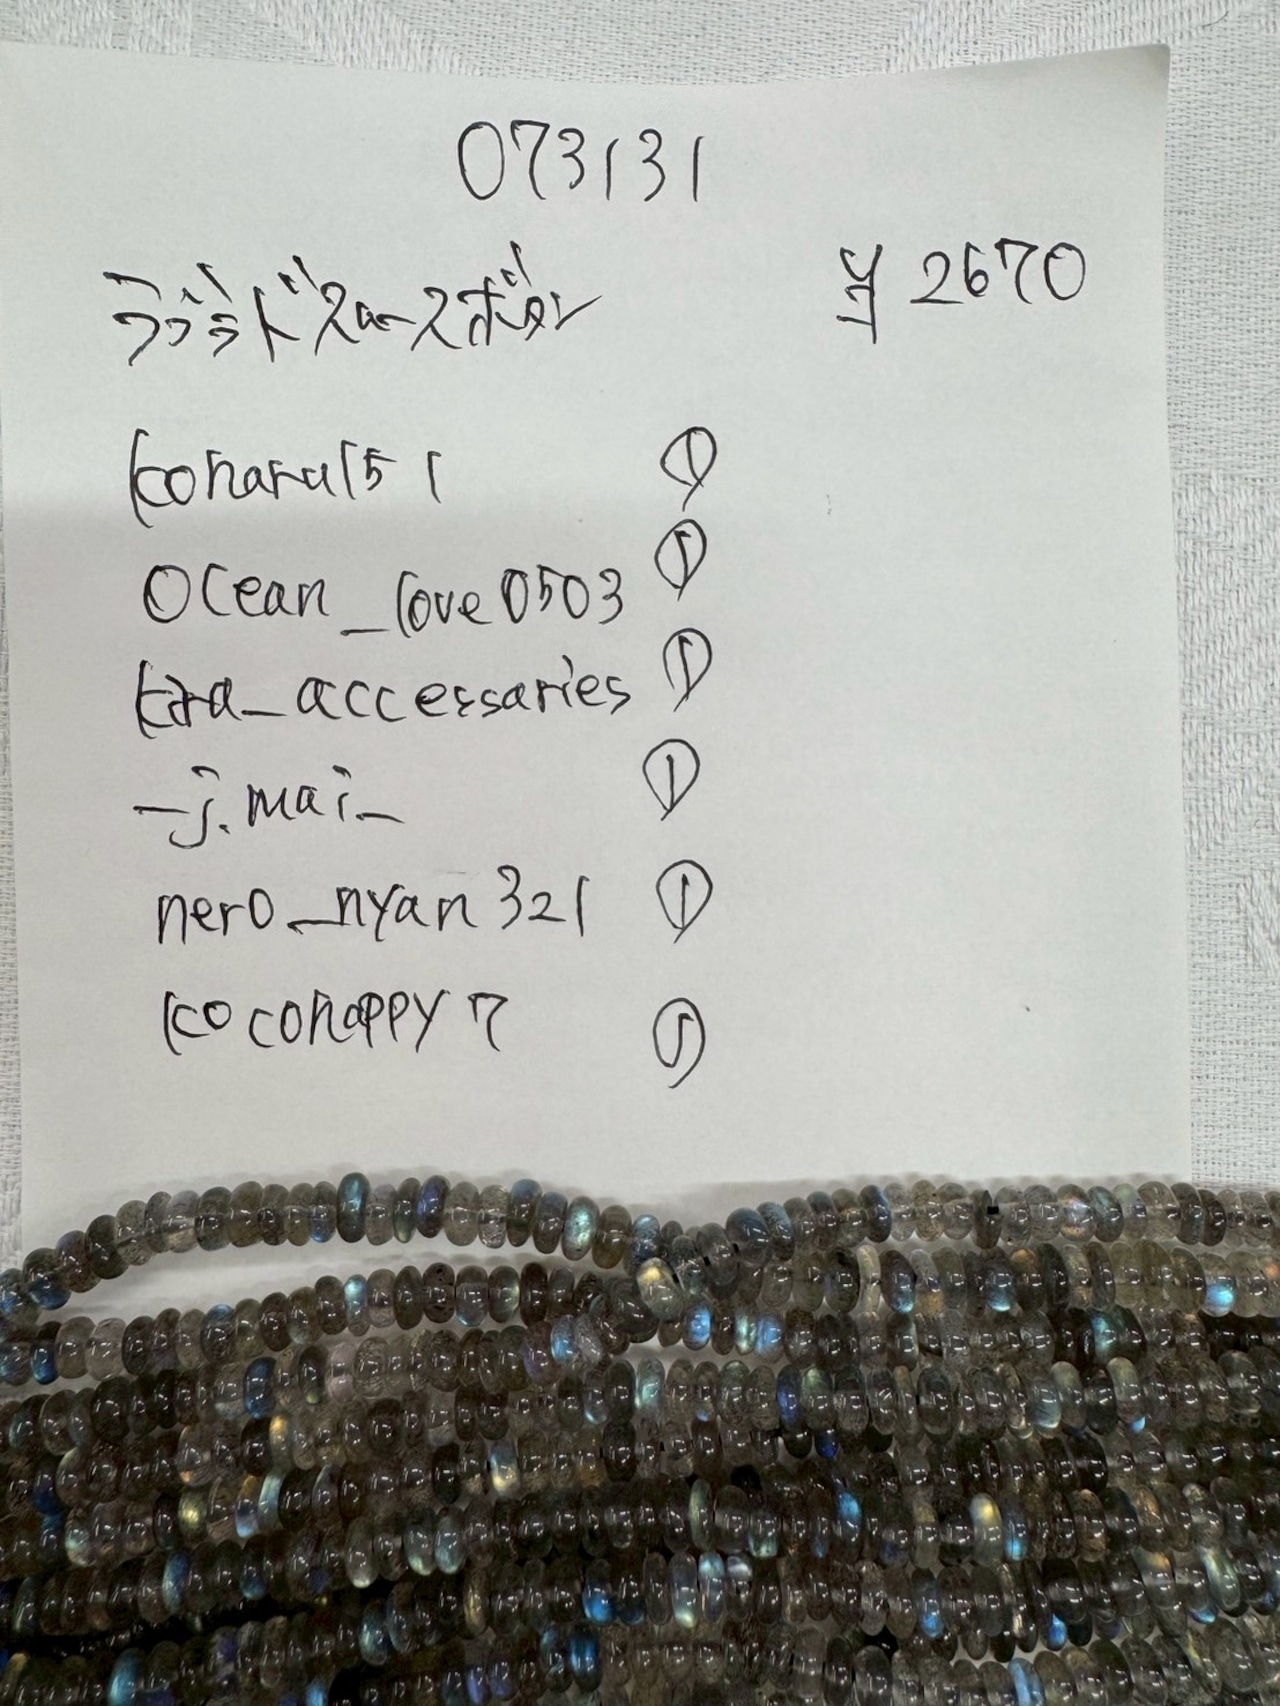 073131
ラブラドスムースボタン
¥2670
koharu151 ①
ocean_love0503 ①
kira_accessaries ①
_j.mai_ ①
nero_nyan321 ①
kocohappy7 ①